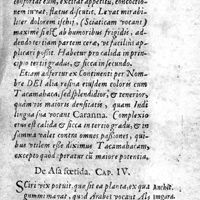 confortat eum, excitat appetitū, concoctio-
nem iuvat, flatus discutit. Levat mirabi-
liter dolorem ischij, (Sciaticam vocant)
maxime si est, ab humoribus frigidis, ad-
dendo tertiam partem cerae, ut facilius ap-
plicari possit. Habetur pro calida in prin-
cipio tertij gradus, & sicca in secundo.
Etiam asfertur ex Continenti per Nom-
bre DEI alia resina eiusdem coloris cum
Tacamahaca, sed splendidior, & tenerior,
quamvis maioris densitatis, quam Indi
lingua sua vocant Caranna. Complexio
eius est calida & sicca in tertio gradu, & ea
summa valet contra omnes passiones, qui-
bus utilem esse diximus Tacamahacam,
excepto quod operatur cū maiore potentia.
De Assa foetida. CAP. IV.
Sciri vix potuit, quae sit ea planta, ex qua
gummi manat, quod Arabes vocant Alt
Ancbit.
imgara.